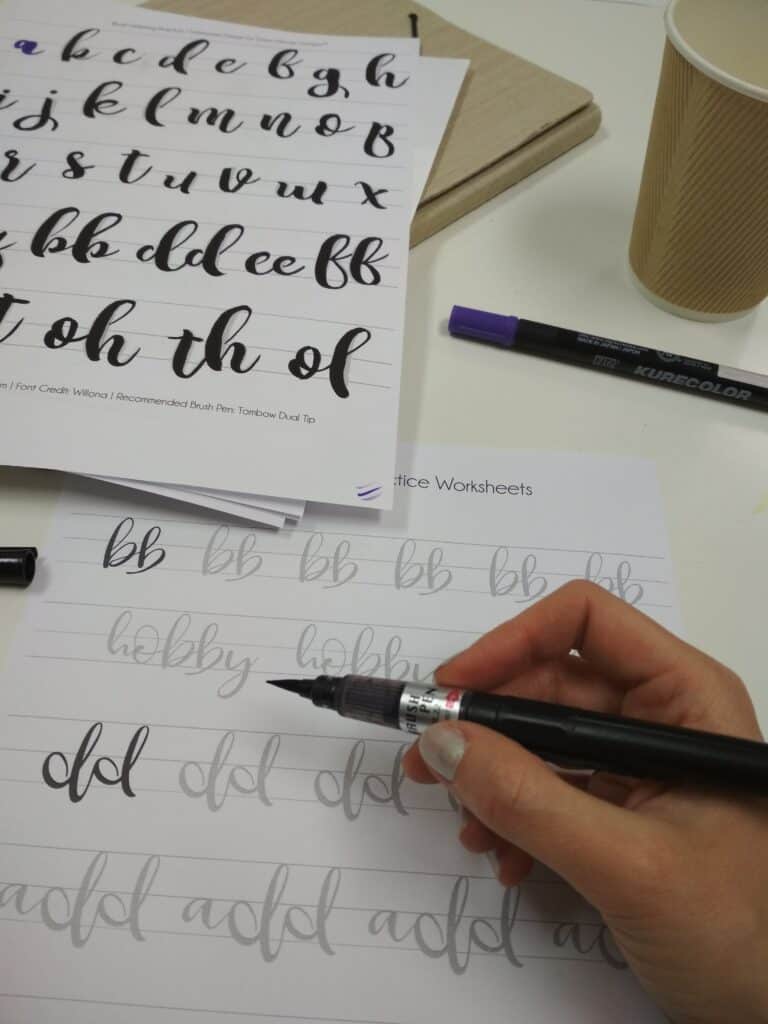 a b c d e f g h
i j k l m n o p
r s t u v w x
bb dd ee ff
t oh th of
| Font Credit: Willona | Recommended Brush Pen: Tombow Dual Tip
MADE IN JAPAN
KURECOLOR
ctice Worksheets
bb bb bb bb bb bb
hobby hobby
RUSH
PEN
dd dd dd
add add add